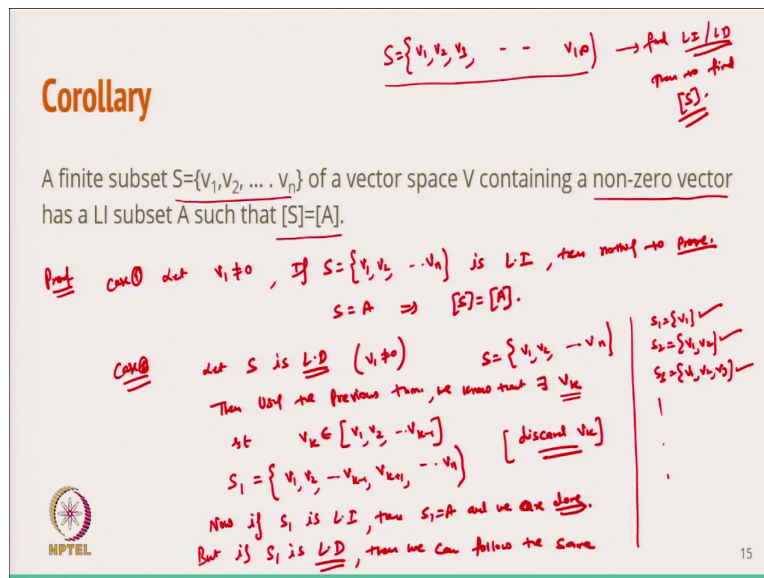 S={v1,v2,v3, -- -- v10} → find LI/LD
then to find
[S].
Corollary
A finite subset S={v1,v2, ... . vn} of a vector space V containing a non-zero vector
has a LI subset A such that [S]=[A].
Proof Case① Let v1≠0, If S={v1,v2, --vn} is L.I, then nothing to prove.
S=A ⇒ [S]=[A].
Case② Let S is L.D (v1≠0) S={v1,v2, --vn}
Then Using the Previous thm, we know that ∃ vk
st vk∈[v1,v2, --vk-1] [discard vk]
S1={v1,v2, --vk-1,vk+1, --vn}
Now if S1 is LI, then S1=A and we are done.
But if S1 is LD, then we can follow the same
S1={v1} ✓
S2={v1,v2} ✓
S3={v1,v2,v3} ✓
NPTEL
15